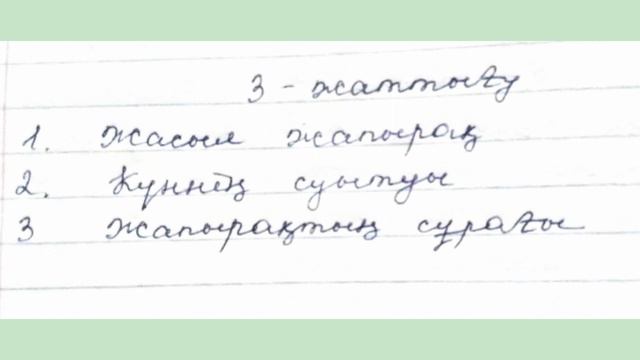 3 - жаттығу
1. Жасыл жапырақ
2. Күннің суытуы
3 Жапырақтың сұрағы